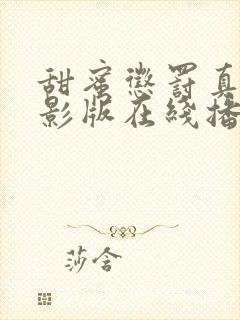 甜蜜惩罚真
影版在线播
莎含